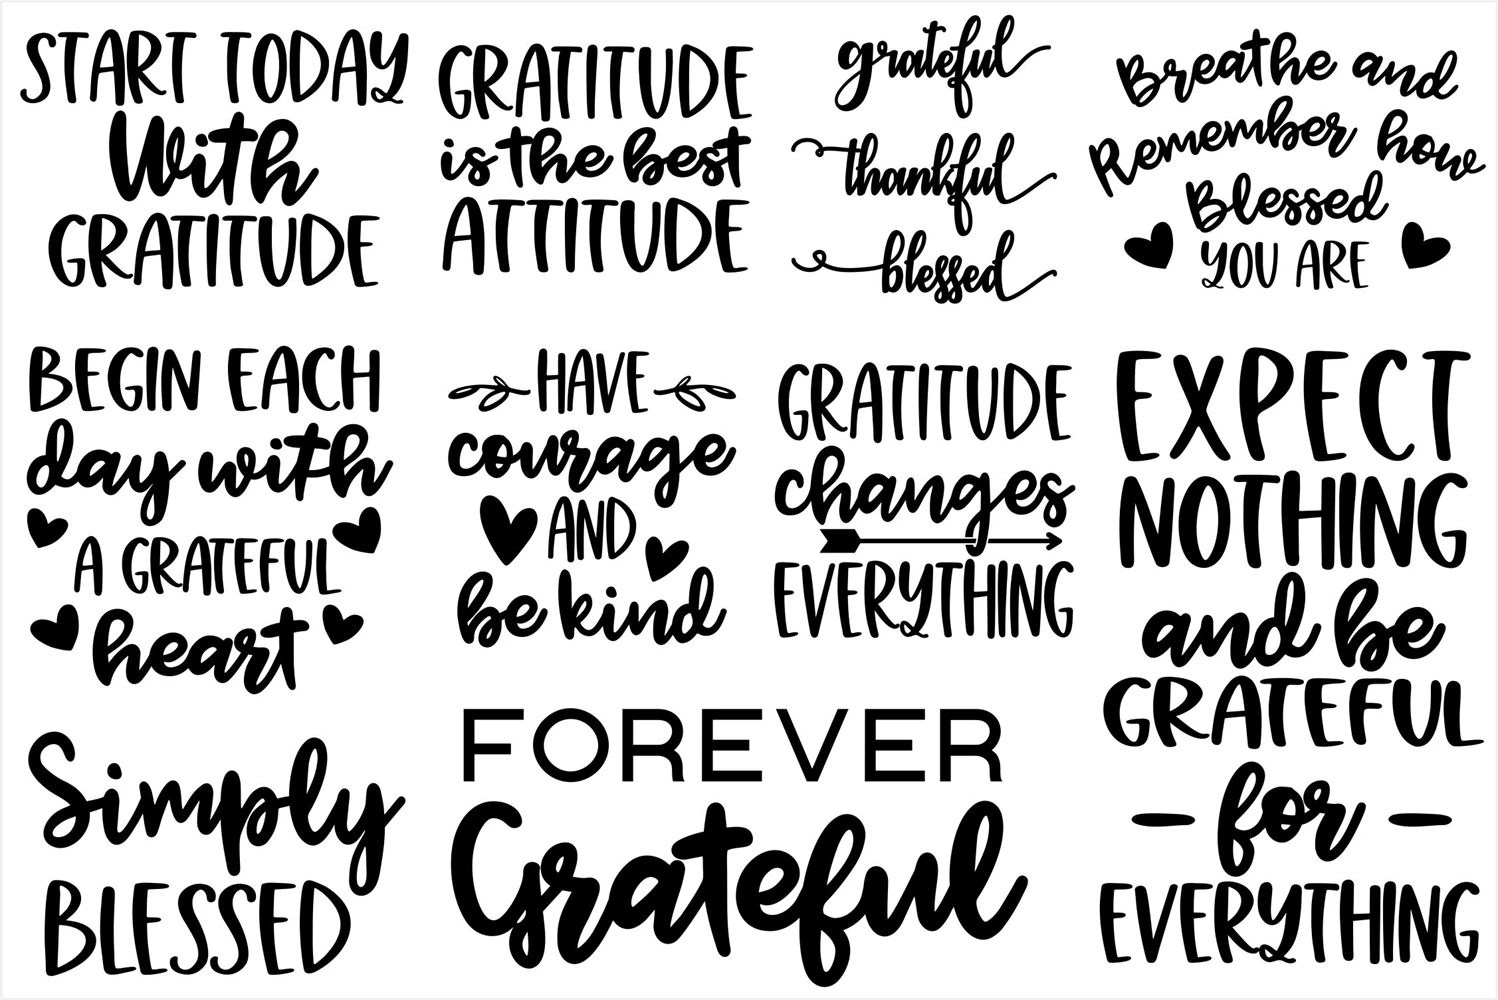 START TODAY
With
GRATITUDE
GRATITUDE
is the best
ATTITUDE
grateful
thankful
blessed
Breathe and
Remember how
Blessed
YOU ARE
BEGIN EACH
day with
A GRATEFUL
heart
HAVE
courage
AND
be kind
GRATITUDE
changes
EVERYTHING
EXPECT
NOTHING
and be
GRATEFUL
- for -
EVERYTHING
Simply
BLESSED
FOREVER
Grateful